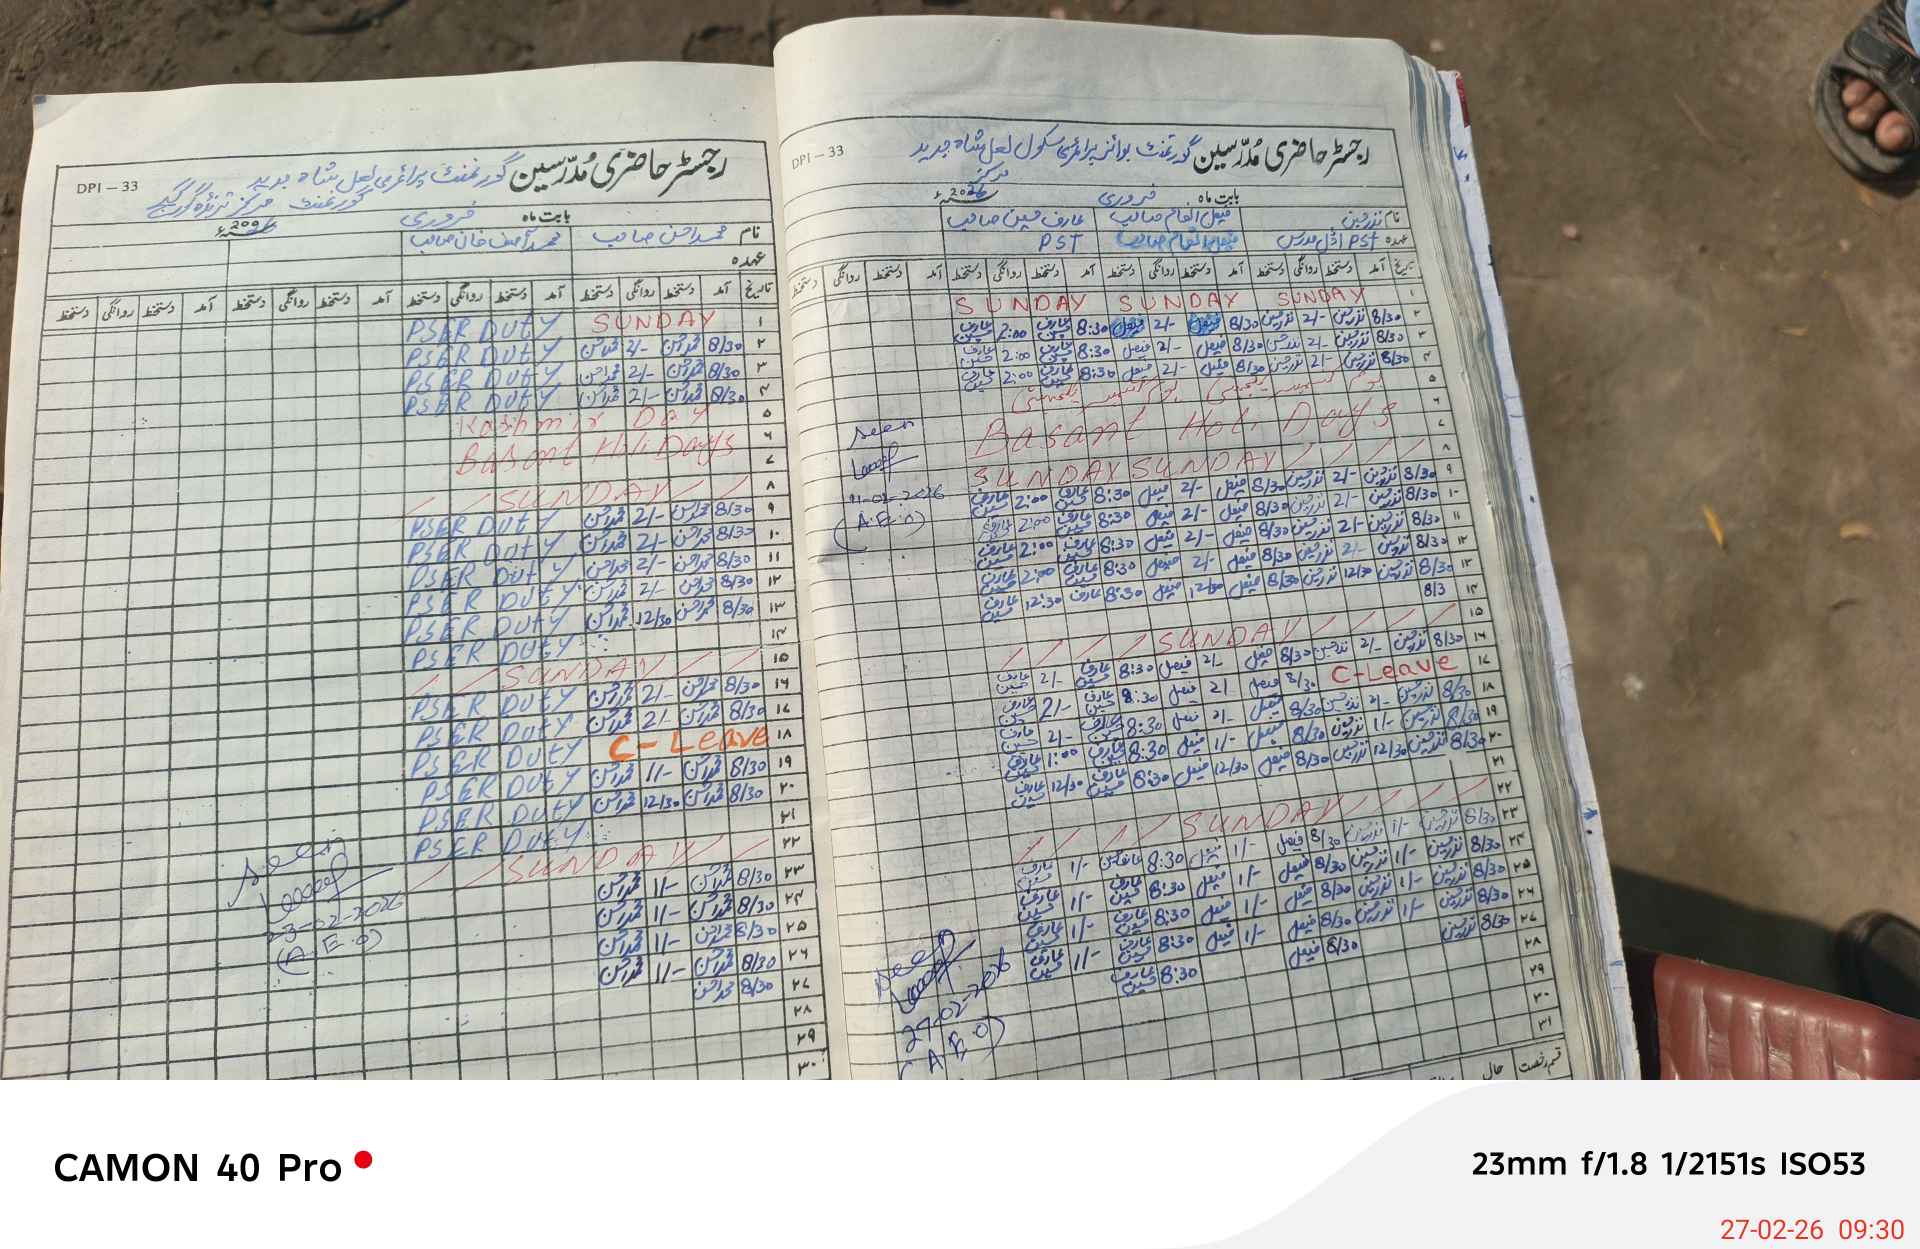 رجسٹر حاضری مُدرّسین گورنمنٹ پرائمری لعل شاہ جدید
DPI – 33
گورنمنٹ مرکز
بابت ماہ فروری 2026ء
نام محمد احسن صاحب محمد آصف خان صاحب
عہدہ
تاریخ آمد دستخط روانگی دستخط آمد دستخط روانگی دستخط آمد دستخط روانگی دستخط آمد دستخط روانگی دستخط
۱ SUNDAY PSER DUTY
۲ 8/30 محمد احسن 2/- محمد احسن PSER DUTY
۳ 8/30 محمد احسن 2/- محمد احسن PSER DUTY
۴ 8/30 محمد احسن 2/- محمد احسن PSER DUTY
۵ Kashmir Day
۶ Basant HoliDays
۷
۸ SUNDAY
۹ 8/30 محمد احسن 2/- محمد احسن PSER DUTY
۱۰ 8/30 محمد احسن 2/- محمد احسن PSER DUTY
۱۱ 8/30 محمد احسن 2/- محمد احسن PSER DUTY
۱۲ 8/30 محمد احسن 2/- محمد احسن PSER DUTY
۱۳ 8/30 محمد احسن 12/30 محمد احسن PSER DUTY
۱۴ PSER DUTY
۱۵ SUNDAY
۱۶ 8/30 محمد احسن 2/- محمد احسن PSER DUTY
۱۷ 8/30 محمد احسن 2/- محمد احسن PSER DUTY
۱۸ C-Leave PSER DUTY
۱۹ 8/30 محمد احسن 1/- محمد احسن PSER DUTY
۲۰ 8/30 محمد احسن 12/30 محمد احسن PSER DUTY
۲۱ PSER DUTY
۲۲ SUNDAY
۲۳ 8/30 محمد احسن 1/- محمد احسن
۲۴ 8/30 محمد احسن 1/- محمد احسن
۲۵ 8/30 محمد احسن 1/- محمد احسن
۲۶ 8/30 محمد احسن 1/- محمد احسن
۲۷ 8/30 محمد احسن
۲۸
۲۹
۳۰
Seen
23-02-2026
(A.E.O)
رجسٹر حاضری مُدرّسین گورنمنٹ بوائز پرائمری سکول لعل شاہ جدید
DPI – 33
مرکز
بابت ماہ فروری 2026ء
نام نذر حسین فیصل انعام صاحب عارف حسین صاحب
عہدہ PST اوّل مدرس فیصل انعام صاحب PST
تاریخ آمد دستخط روانگی دستخط آمد دستخط روانگی دستخط آمد دستخط روانگی دستخط آمد دستخط روانگی دستخط
۱ SUNDAY SUNDAY SUNDAY
۲ 8/30 نذر حسین 2/- نذر حسین 8/30 فیصل 2/- فیصل 8:30 عارف حسین 2:00 عارف حسین
۳ 8/30 نذر حسین 2/- نذر حسین 8/30 فیصل 2/- فیصل 8:30 عارف حسین 2:00 عارف حسین
۴ 8/30 نذر حسین 2/- نذر حسین 8/30 فیصل 2/- فیصل 8:30 عارف حسین 2:00 عارف حسین
۵ یوم کشمیر یکجہتی یوم کشمیر یکجہتی
۶ Basant Holi Days
۷
۸ SUNDAY SUNDAY
۹ 8/30 نذر حسین 2/- نذر حسین 8/30 فیصل 2/- فیصل 8:30 عارف حسین 2:00 عارف حسین
۱۰ 8/30 نذر حسین 2/- نذر حسین 8/30 فیصل 2/- فیصل 8:30 عارف حسین 2:00 عارف حسین
۱۱ 8/30 نذر حسین 2/- نذر حسین 8/30 فیصل 2/- فیصل 8:30 عارف حسین 2:00 عارف حسین
۱۲ 8/30 نذر حسین 2/- نذر حسین 8/30 فیصل 2/- فیصل 8:30 عارف حسین 2:00 عارف حسین
۱۳ 8/30 نذر حسین 12/30 نذر حسین 8/30 فیصل 12/30 فیصل 8:30 عارف 12:30 عارف حسین
۱۴ 8/3
۱۵ SUNDAY
۱۶ 8/30 نذر حسین 2/- نذر حسین 8/30 فیصل 2/- فیصل 8:30 عارف حسین 2/- عارف حسین
۱۷ C-Leave 8/30 فیصل 2/- فیصل 8:30 عارف حسین 2/- عارف حسین
۱۸ 8/30 نذر حسین 2/- نذر حسین 8/30 فیصل 2/- فیصل 8:30 عارف حسین 2/- عارف حسین
۱۹ 8/30 نذر حسین 1/- نذر حسین 8/30 فیصل 1/- فیصل 8:30 عارف حسین 1:00 عارف حسین
۲۰ 8/30 نذر حسین 12/30 نذر حسین 8/30 فیصل 12/30 فیصل 8:30 عارف حسین 12/30 عارف حسین
۲۱
۲۲ SUNDAY
۲۳ 8/30 نذر حسین 1/- نذر حسین 8/30 فیصل 1/- فیصل 8:30 عارف حسین 1/- عارف حسین
۲۴ 8/30 نذر حسین 1/- نذر حسین 8/30 فیصل 1/- فیصل 8:30 عارف حسین 1/- عارف حسین
۲۵ 8/30 نذر حسین 1/- نذر حسین 8/30 فیصل 1/- فیصل 8:30 عارف حسین 1/- عارف حسین
۲۶ 8/30 نذر حسین 1/- نذر حسین 8/30 فیصل 1/- فیصل 8:30 عارف حسین 1/- عارف حسین
۲۷ 8/30 نذر حسین 8/30 فیصل 8:30 عارف حسین
۲۸
۲۹
۳۰
۳۱
قسم رخصت حال
Seen
11-02-2026
(A.E.O)
Seen
27-02-2026
(A.E.O)
CAMON 40 Pro
23mm f/1.8 1/2151s ISO53
27-02-26 09:30